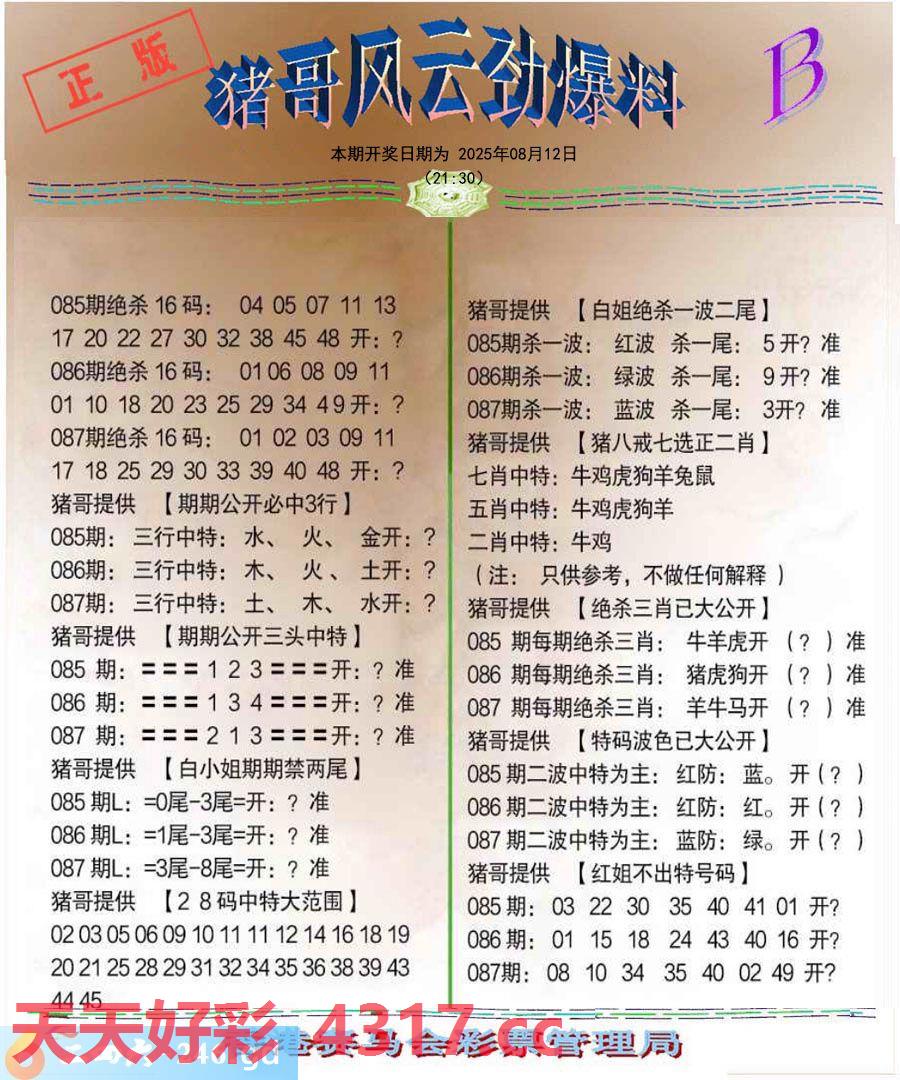 正版
猪哥风云劲爆料
B
本期开奖日期为 2025年08月12日
（21:30）
085期绝杀16码： 04 05 07 11 13
17 20 22 27 30 32 38 45 48 开：?
086期绝杀16码： 01 06 08 09 11
01 10 18 20 23 25 29 34 49开：?
087期绝杀16码： 01 02 03 09 11
17 18 25 29 30 33 39 40 48 开：?
猪哥提供 【期期公开必中3行】
085期：三行中特：水、 火、 金开：?
086期：三行中特：木、 火、 土开：?
087期：三行中特：土、 木、 水开：?
猪哥提供 【期期公开三头中特】
085 期：===1 2 3===开：? 准
086 期：===1 3 4===开：? 准
087 期：===2 1 3===开：? 准
猪哥提供 【白小姐期期禁两尾】
085期L：=0尾-3尾=开：? 准
086期L：=1尾-3尾=开：? 准
087期L：=3尾-8尾=开：? 准
猪哥提供 【2 8码中特大范围】
02 03 05 06 09 10 11 11 12 14 16 18 19
20 21 25 28 29 31 32 34 35 36 38 39 43
44 45
猪哥提供 【白姐绝杀一波二尾】
085期杀一波： 红波 杀一尾： 5开? 准
086期杀一波： 绿波 杀一尾： 9开? 准
087期杀一波： 蓝波 杀一尾： 3开? 准
猪哥提供 【猪八戒七选正二肖】
七肖中特：牛鸡虎狗羊兔鼠
五肖中特：牛鸡虎狗羊
二肖中特：牛鸡
（注： 只供参考，不做任何解释 ）
猪哥提供 【绝杀三肖已大公开】
085 期每期绝杀三肖： 牛羊虎开 （? ）准
086 期每期绝杀三肖： 猪虎狗开 （? ）准
087 期每期绝杀三肖： 羊牛马开 （? ）准
猪哥提供 【特码波色已大公开】
085期二波中特为主：红防：蓝。开（? ）
086期二波中特为主：红防：红。开（? ）
087期二波中特为主：蓝防：绿。开（? ）
猪哥提供 【红姐不出特号码】
085期： 03 22 30 35 40 41 01 开?
086期： 01 15 18 24 43 40 16 开?
087期： 08 10 34 35 40 02 49 开?
天天好彩 4317.cc
港 马会彩票管理局